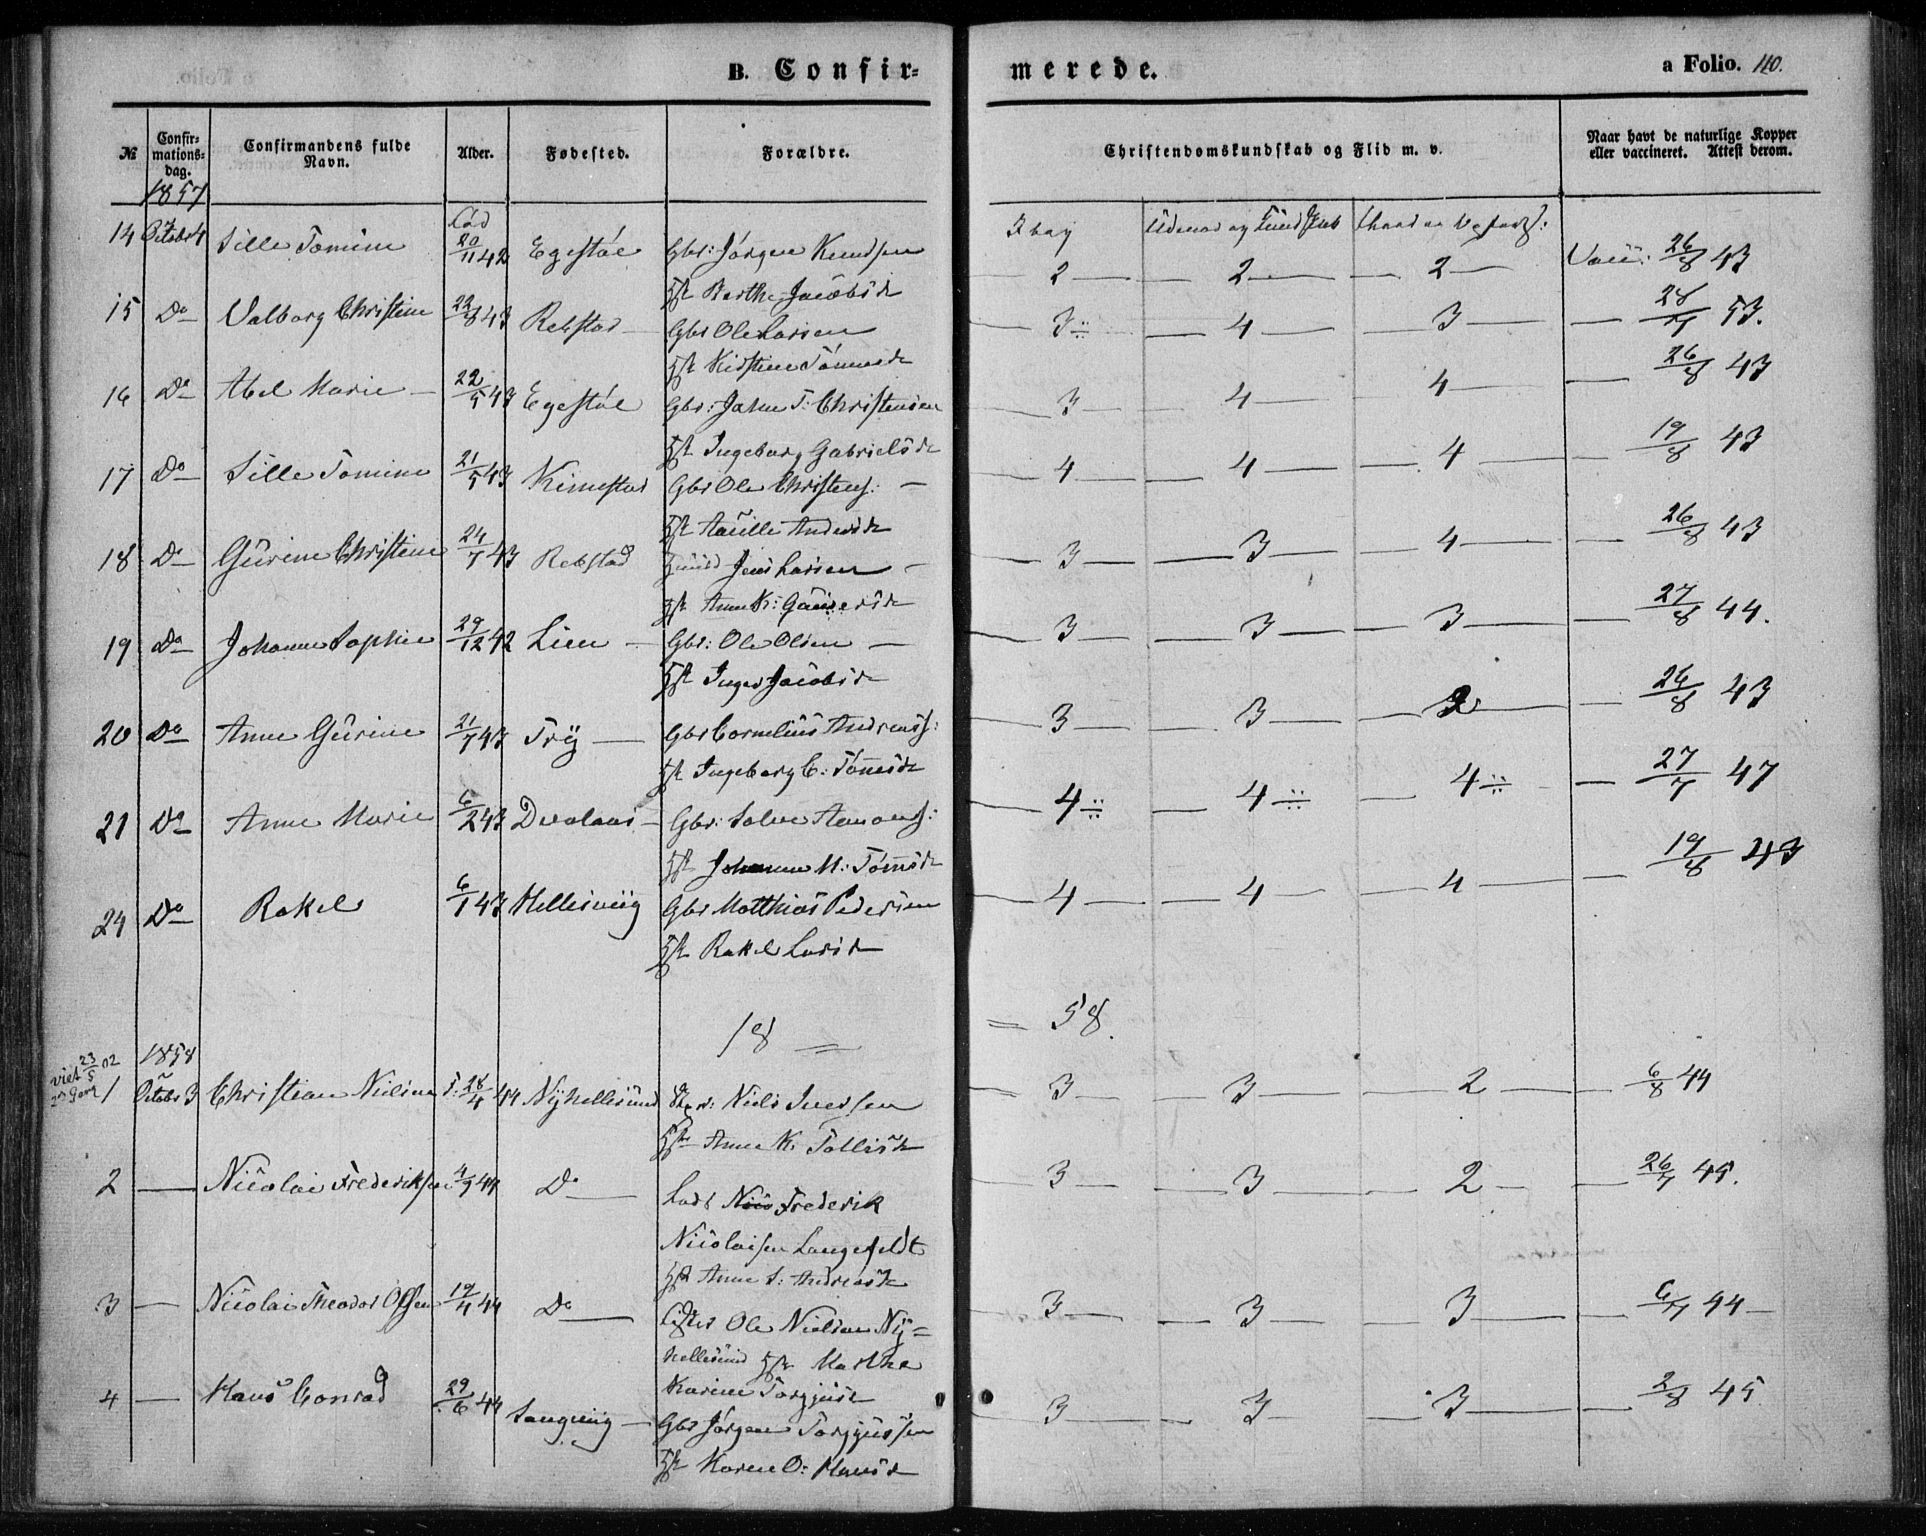 B. Confir=
merede.
a Folio. 110.
№
Confir=
mations=
dag.
Confirmandens fulde
Navn.
Alder.
Fødested.
Forældre.
Christendomskundskab og Flid m. v.
Naar havt de naturlige Kopper
eller vaccineret. Attest derom.
1857
14 Octobr 4 Sille Tomine 20/11 42 Egestøe Gbr: Jörgen Knudsen 2 2 2 Vacc: 26/8 43
Hst Berthe Jacobsd
15 Do Valborg Christine 22/8 43 Rebstad Gbr Ole Larsen 3 ÷ 4 3 28/7 53.
Hst Kirstine Tönnesd
16 Do Abel Marie 22/5 43 Egestøe Gbr: Jahn T: Christensen 3 4 4 26/8 43
Hst Ingeborg Gabrielsd
17 Do Sille Tomine 21/5 43 Kimestad Gbr Ole Christens: 4 4 4 19/8 43
Hst Anders d
18 Do Gurine Christine 24/7 43 Rebstad Jens Larsen 3 3 4 26/8 43
Hst Anne K:
19 Do Johanne Sophie 29/12 42 Lien Gbr: Ole Olsen 3 3 3 27/8 44.
Hst Inger Jacobsd
20 Do Anne Gurine 21/7 43 Try Gbr Cornelius Andreass: 3 3 2 26/8 43
Hst Ingeborg C: Tönnesd
21 Do Anne Marie 6/2 43 Gbr: Salve Aamons: 4 ÷ 4 ÷ 4 ÷ 27/7 47
Hst Johanne M: Tönnesd
24 Do Rakel 6/1 43 Hellesviig Gbr Matthias Pedersen 4 4 4 19/8 43
Hst Rakel Larsd
18
58.
viet 23/5 02
2den Gang
1858
1 Octobr 3 Christian Nielsine F: 28/4 44 Nÿhellesund Niels Iversen 3 3 2 6/8 44
Hst Anne K. Tollisd
2 Nicolai Frederiksen 4/9 44 Do Lods Frederik 3 3 2 26/7 45.
Nicolaisen Langefeldt
Hst Anne S: Andreasd
3 Nicolai Theodor Olsen 19/4 44 Do Ole Nielsen Nÿ= 3 3 3 6/7 44
hellesund Hst Marthe
Karine Torgjusd
4 Hans Conrad 29/6 44 Langviig Gbr Jörgen Torgjussen 3 3 3 2/8 45
Hst Karen O: Hansd